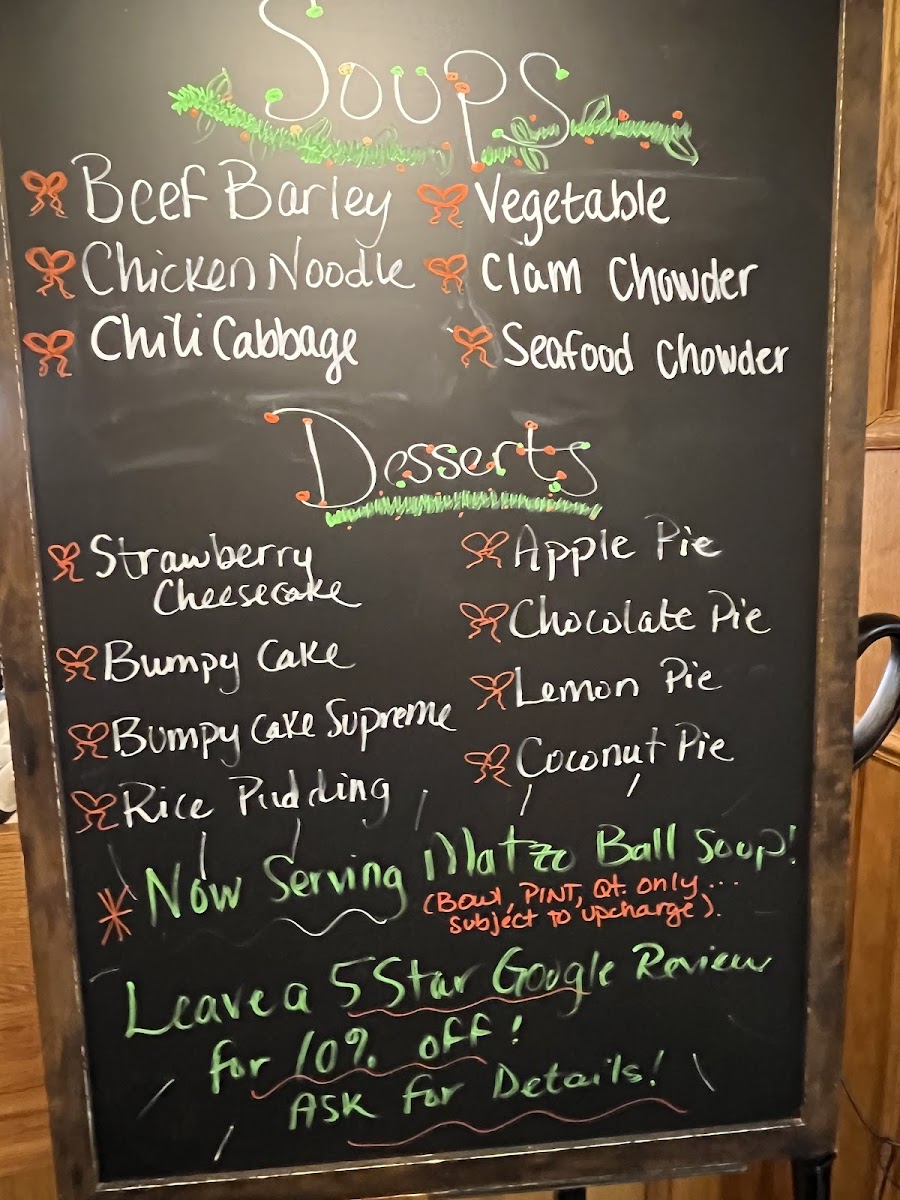 Soups
Beef Barley
Chicken Noodle
Chili Cabbage
Vegetable
Clam Chowder
Seafood Chowder
Desserts
Strawberry
Cheesecake
Bumpy Cake
Bumpy Cake Supreme
Rice Pudding
Apple Pie
Chocolate Pie
Lemon Pie
Coconut Pie
* Now Serving Matzo Ball Soup!
(Bowl, PINT, Qt. only...
subject to upcharge).
Leave a 5 Star Google Review
for 10% off!
ASK for Details!